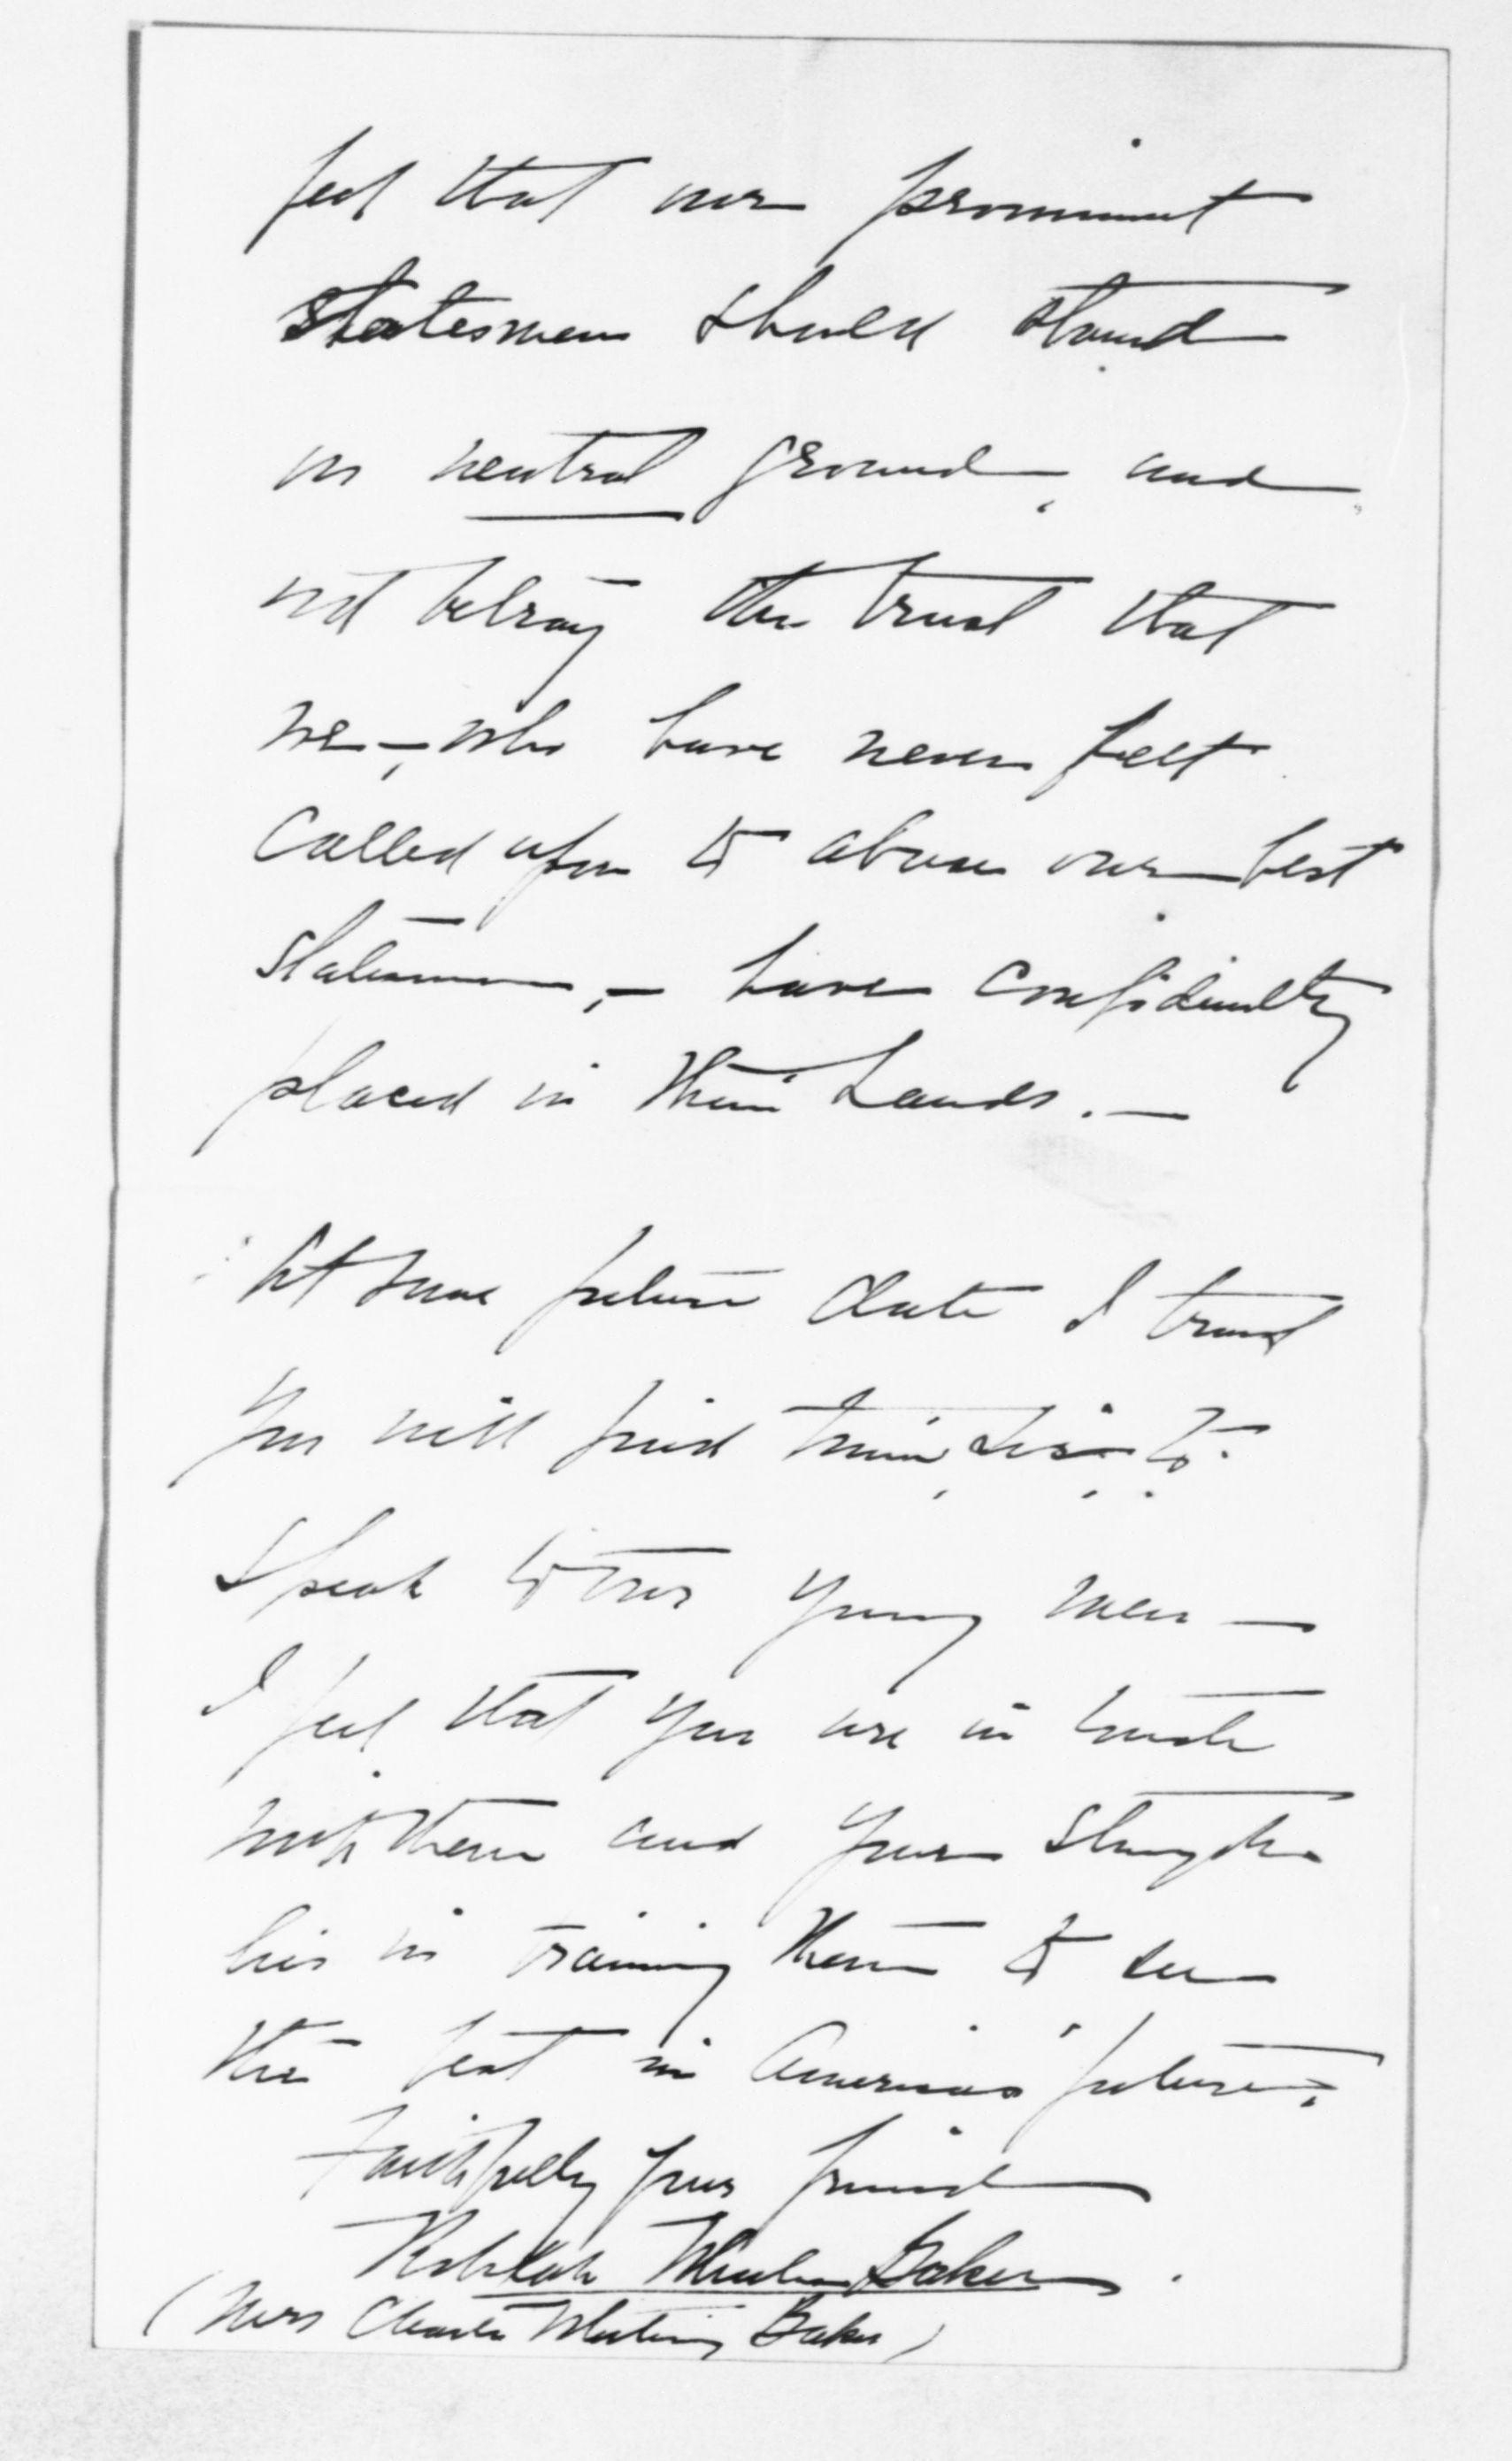 feel that our prominent
statesmen should stand
on neutral ground, and,
not betray the trust that
we, - who have never felt
called upon to abuse our best
statesmen, - have confidently
placed in their hands. -
At some future date I trust
you will find time to
speak to our young men -
I feel that you are in touch
with them and your strength
lies in training them to see
the best in America's future.
Faithfully your friend
Baker.
(Mrs Charles Whiting Baker)